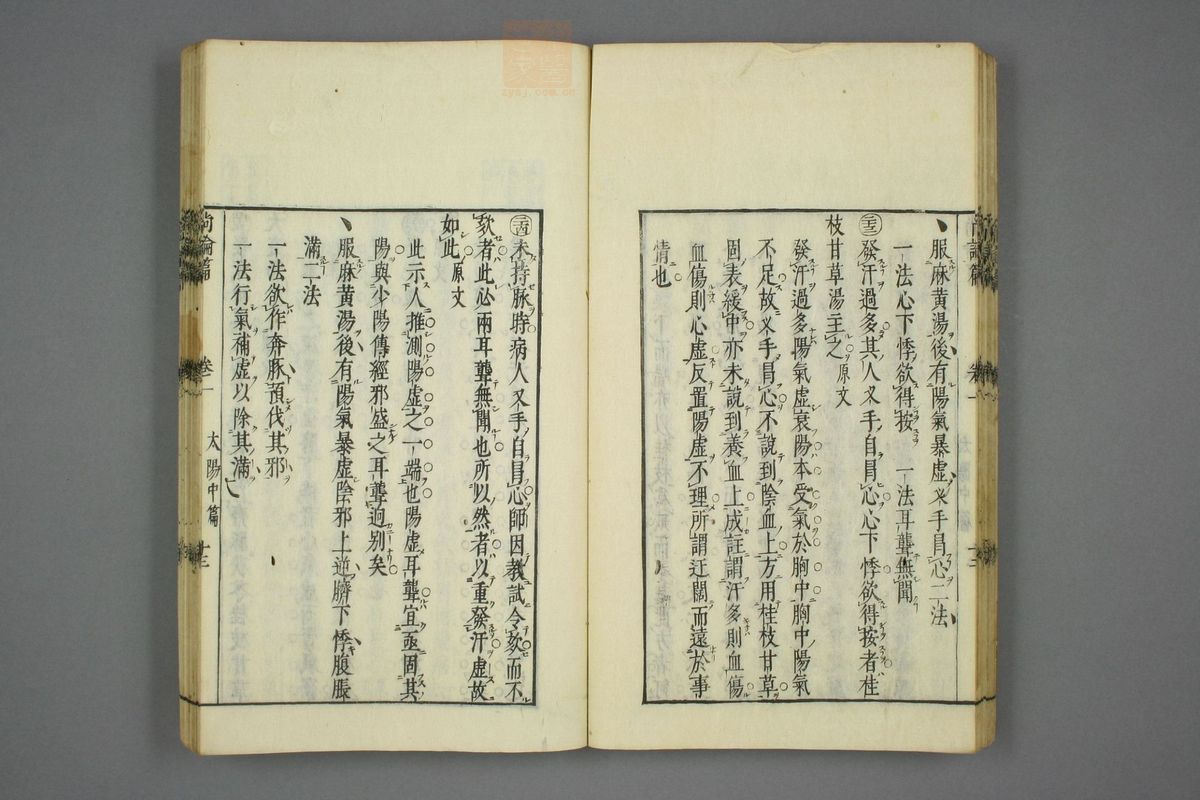 服麻黃湯後有陽氣暴虛叉手冒心二法
一法心下悸欲得按　一法耳聾無聞
發汗過多其人叉手自冒心心下悸欲得按者桂
枝甘草湯主之原文
發汗過多陽氣虛衰陽本受氣於胸中胸中陽氣
不足故叉手冒心不說到陰血上方用桂枝甘草
固表緩中亦未說到養血上成註謂汗多則血傷
血傷則心虛反置陽虛不理所謂迂闊而遠於事
情也
未持脉時病人叉手自冒心師因教試令欬而不
欬者此必兩耳聾無聞也所以然者以重發汗虛故
如此原文
此示人推測陽虛之一端也陽虛耳聾宜亟固其
陽與少陽傳經邪盛之耳聾迥別矣
服麻黃湯後有陽氣暴虛陰邪上逆臍下悸腹脹
滿二法
一法欲作奔豚預伐其邪
一法行氣補虛以除其滿
尚論篇　卷一　太陽中篇　十三
zysj.com.cn